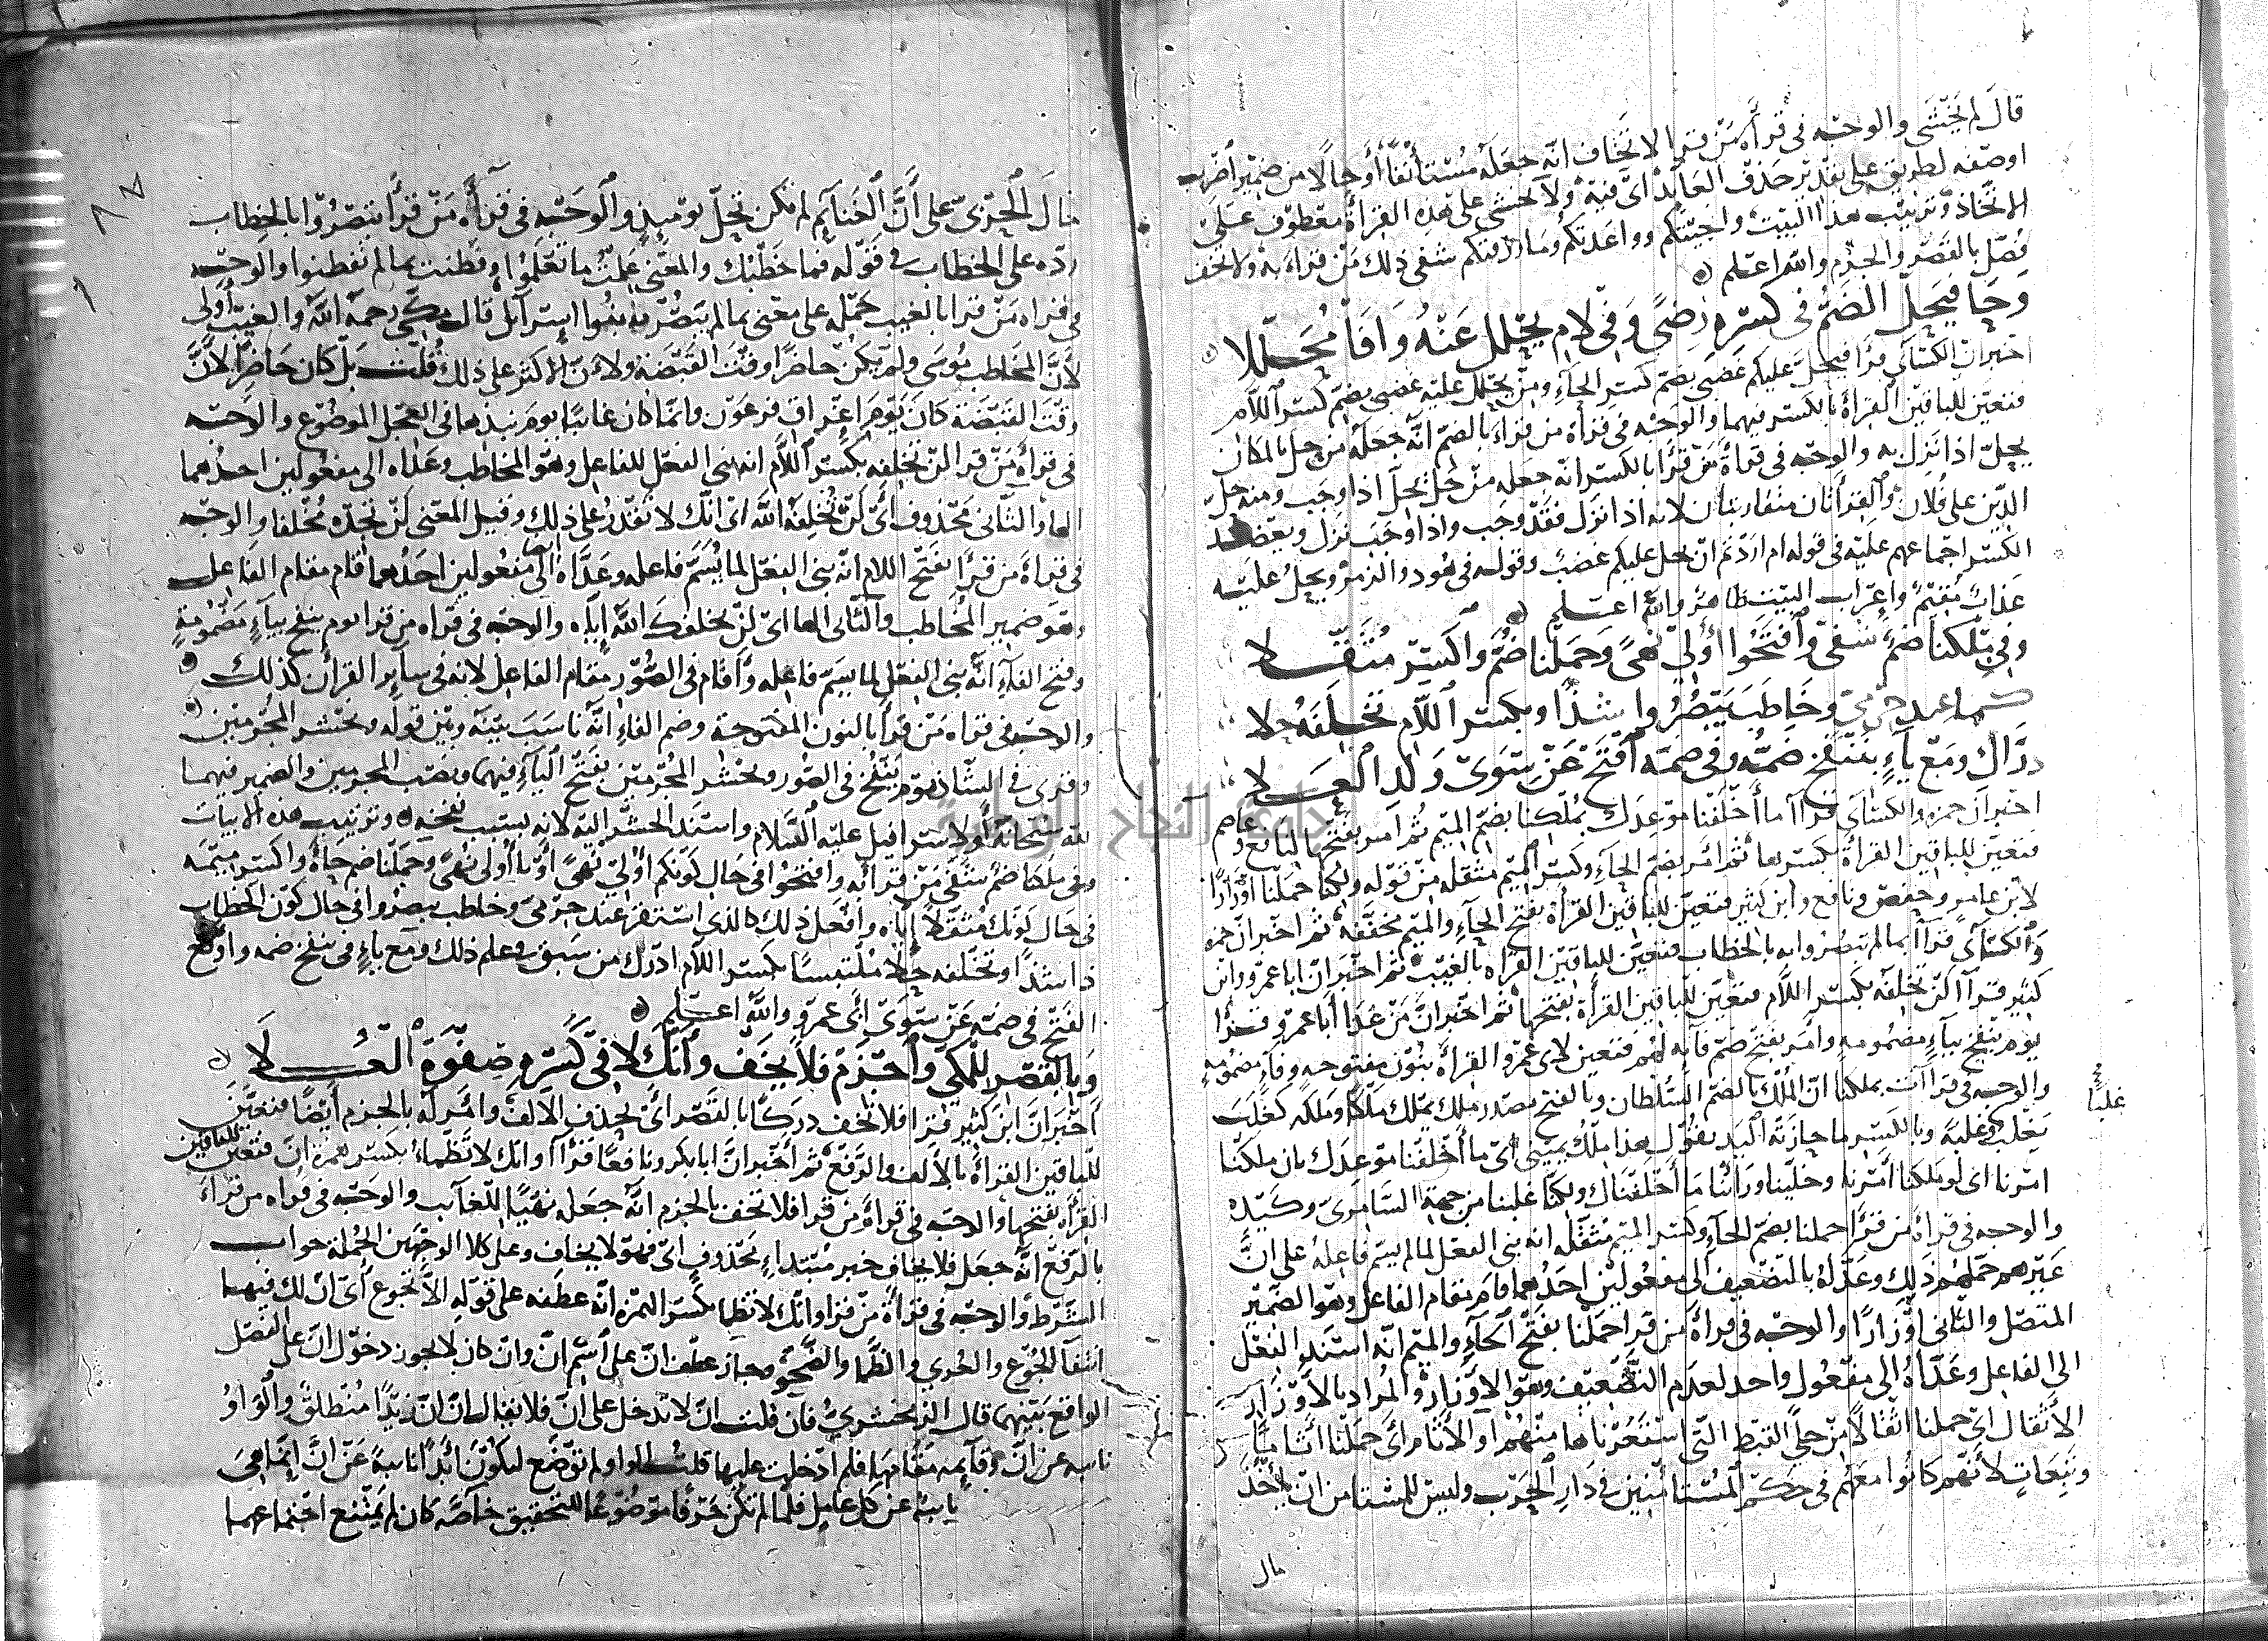 قال لم يخشى والوجه في قرأة من قرا لا تخاف انه جعله مستأنفا أو حالا من ضمير اضرب
اوصفه لطريق على تقدير حذف العايد اى فيه ولا تخشى على هذه القرأة معطوف عليه
الاتخاذ وترتيب هذا البيت وانجيتكم وواعدتكم وما رزقتكم شفى ذلك من قراءبه ولا تخف
فصل بالقصر والجزم والله اعلم
وحا فيحل الضم في كسره رضى وفي لام يحلل عنه وافا محللا
اخبر ان الكسائي قرا فيحل عليكم غضبي بضم كسر الحاء ومن يحلل عليه غضبي بضم كسر اللام
فتعين للباقين القرأة بالكسر فيهما والوجه في قرأة من قراء بالضم انه جعله من حل بالمكان
يحل اذا نزل به والوجه في قرأة من قرأ بالكسر انه جعله من حل يحل اذا وجب ومنه حل
الدين على فلان والقرأتان متقاربتان لانه اذا نزل فقد وجب واذا وجب نزل ويعضد
الكسر اجماعهم عليه في قوله ام اردتم ان يحل عليكم غضب وقوله في هود والزمر ويحل عليه
عذاب مقيم واعراب البيت ظاهر والله اعلم
وفي ملكنا ضم شفى وافتحوا أولي نهى وحملنا ضم واكسر مثقلا
كما عند حرمي وخاطب يبصروا شذا وبكسر اللام تخلفه حلا
دراك ومع ياء بننفخ ضمه وفي ضمه افتح عن سوى ولد العلا
اخبر ان حمزه والكسائي قرآ ما أخلفنا موعدك بملكنا بضم الميم ثم امر بفتحها لنافع وعاصم
فتعين للباقين القرأة بكسرها ثم امر بضم الحاء وكسر الميم مثقله من قوله ولكنا حملنا اوزارا
لابن عامر وحفص ونافع وابن كثير فتعين للباقين القرأة بفتح الحاء والميم مخففة ثم اخبر ان حمزه
والكسائي قرآ بما لم تبصروا به بالخطاب فتعين للباقين القراه بالغيب ثم اخبر ان ابا عمرو وابن
كثير قرآ لن تخلفه بكسر اللام فتعين للباقين القرأة بفتحها ثم اخبر ان من عدا أبا عمرو قرأ
يوم ينفخ بياء مضمومه وامر بفتح ضم فائه لهم فتعين لابي عمرو القراة بنون مفتوحه وفاء مضمومه
والوجه في قراآت بملكنا ان الملك بالضم السلطان وبالفتح مصدر ملك يملك ملكا وملكه كغلب
غلبا
يغلب غلبة وبالكسر ما حازته اليد يقول هذا ملك يميني اى ما أخلفنا موعدك بان ملكنا
امرنا اى لو ملكنا أمرنا وخلينا وراينا ما أخلفناك ولكنا غلبنا من جهة السامري وكيده
والوجه في قراة من قرأ حملنا بضم الحاء وكسر الميم مثقله انه بنى الفعل لما لم يسم فاعله على ان
غيرهم حملهم ذلك وعداه بالتضعيف الى مفعولين احدهما قام مقام الفاعل وهو الضمير
المتصل والثاني اوزارا والوجه في قرأة من قرا حملنا بفتح الحاء والميم انه اسند الفعل
الى الفاعل وعداه الى مفعول واحد لعدم التضعيف وهو الاوزار والمراد بالاوزار
الاثقال اى حملنا اثقالا من حلي القبط التي استعرناها منهم أو الأثام اى حملنا اثاما
وتبعات لأنهم كانوا معهم في حكم المستامنين في دار الحرب وليس للمستامن ان يأخذ
مال
٨٧
مال الحربي على أن الغنايم لم تكن تحل يوميذ والوجه في قرأة من قرأ تبصروا بالخطاب
رده على الخطاب في قوله فما خطبك والمعنى علمت ما لم تعلموا وفطنت بما لم تفطنوا والوجه
في قراه من قرا بالغيب حمله على معنى بما لم يبصر به بنوا إسرآئل قال مكي رحمه الله والغيب أولى
لأن المخاطب موسى ولم يكن حاضرا وقت القبضة ولان الاكثر على ذلك قلت بل كان حاضرا لأن
وقت القبضة كان يوم اغراق فرعون وانما كان غائبا يوم نبذها في العجل الموضوع والوجه
في قرأة من قرا لن تخلفه بكسر اللام انه بنى الفعل للفاعل وهو المخاطب وعداه الى مفعولين احدهما
الها والثاني محذوف أى لن تخلفه الله اى انك لا تقدر على ذلك وقيل المعنى لن تجده مخلفا والوجه
في قراة من قرأ بفتح اللام انه بنى الفعل لما يسم فاعله وعداه الى مفعولين احدهما قام مقام الفاعل
وهو ضمير المخاطب والثاني الها اى لن يخلفك الله إياه والوجه في قراه من قرا يوم ينفخ بياء مضمومة
وفتح الفاء انه بنى الفعل لما يسم فاعله وأقام في الصور مقام الفاعل لانه في سآير القرأن كذلك
والوجه في قراه من قرأ بالنون المفتوحة وضم الفاء انه ناسب بينه وبين قوله ونحشر المجرمين
وقرى في الشاذ يوم ينفخ في الصور ويحشر المجرمين بفتح الياء فيهما ونصب المجرمين والضمير فيهما
لله سبحانه أو لاسرافيل عليه السلام واسند الحشر اليه لانه بسبب نفخه وترتيب هذه الابيات
وفي ملكنا ضم شفى من قرأبه وافتحوا في حال كونكم أولي نهى أو يا أولي نهى وحملنا ضم حاءه واكسر ميمه
في حال كونك مثقلا إياه وافعل ذلك كالذي استقر عند حرمي وخاطب يبصروا في حال كون الخطاب
ذا شذا وتخلفه حلا ملتبسا بكسر اللام ادراك من سبق وعلم ذلك ومع ياء في ننفخ ضمه واوقع
الفتح في ضمه عن سوى أبى عمرو والله اعلم
وبالقصر للمكي واجزم فلا يخف وأنك لا في كسره صفوة العلا
أخبر ان ابن كثير قرا فلا تخف دركا بالقصر اى بحذف الالف وامر له بالجزم أيضا فتعين
للباقين القراة بالألف والرفع ثم أخبر ان ابا بكر ونافعا قرآ وانك لا تظماء بكسر همزة ان فتعين للباقين
القرأة بفتحها والوجه في قراة من قرا فلا تخف بالجزم انه جعله نهيا للغآيب والوجه في قراه من قراء
بالرفع انه جعل فلا يخاف خبر مبتداء محذوف اى فهو لا يخاف وعلى كلا الوجهين الجملة جواب
الشرط والوجه في قرأة من قرا وانك لا تظما بكسر الهمزة انه عطفه على قوله الا تجوع أى ان لك فيها
انتفا الجوع والعري والظما والضحو وجاز عطف ان على اسم ان وان كان لا يجوز دخول ان على الفصل
الواقع بينهما قال الزمخشري فان قلت ان لا تدخل على أن فلا يقال ان ان زيدا منطلق والواو
نايبه عن ان وقآيمه مقامها فلم أدخلت عليها قلت الواو لم توضع لتكون أبدا نايبة عن ان إنما هي
نايبة عن كل عامل فلما لم تكن حرفا موضوعا للتحقيق خآصة كان لم يمتنع اجتماعهما
جامعة النجاح الوطنية